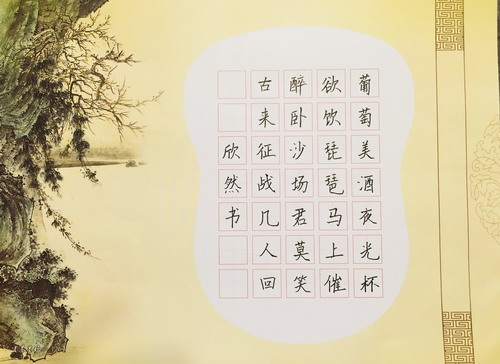 葡萄美酒夜光杯
欲饮琵琶马上催
醉卧沙场君莫笑
古来征战几人回
欣然书